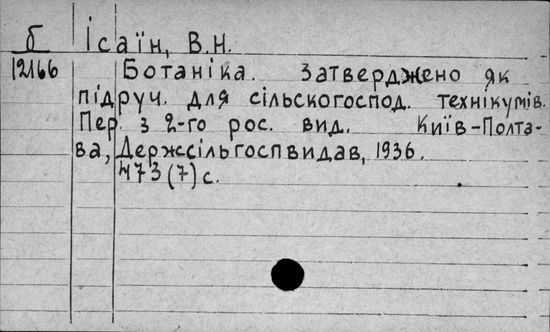 б Ісаїн, В.Н.
12166 Ботаніка. Затверджено як
підруч. для сільскогоспод. технікумів.
Пер. з 2-го рос. вид. Київ-Полта-
ва, Держсільгоспвидав, 1936.
473(7)с.